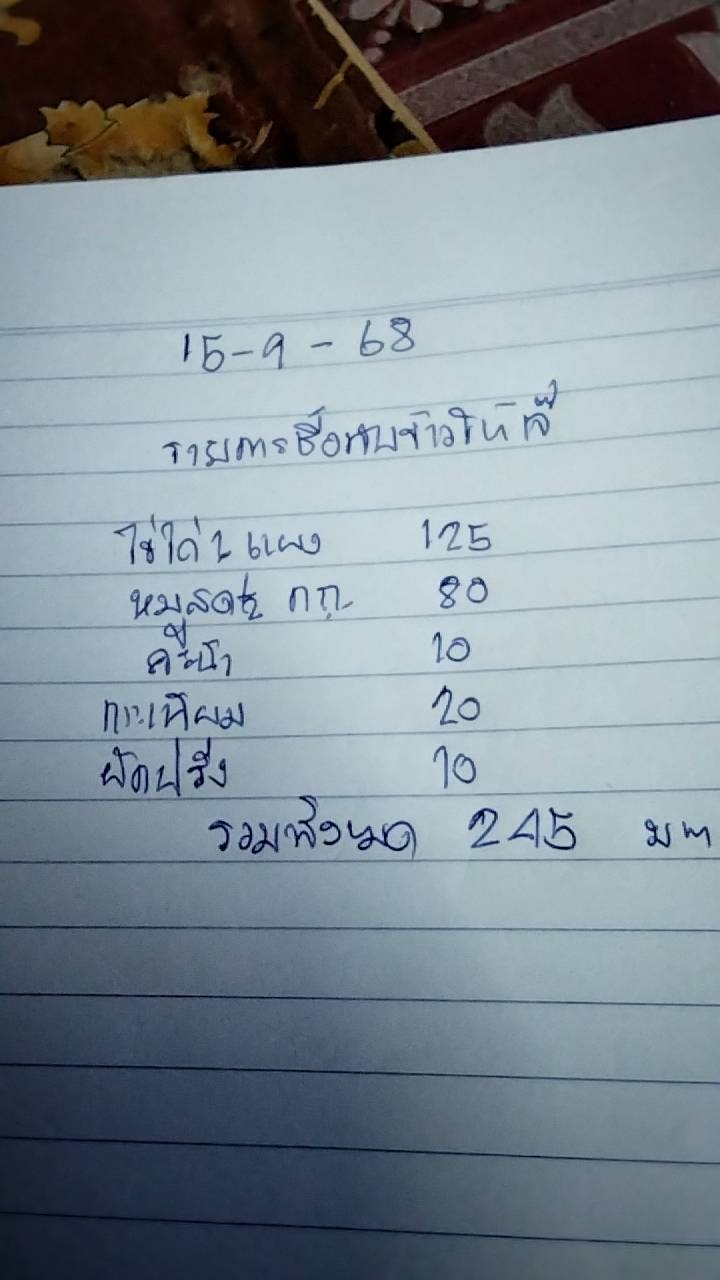 15-9-68
รายการซื้อกับข้าวให้
ไข่ไก่ 1 แผง 125
หมูสด ½ กก. 80
คะน้า 10
กระเทียม 20
ผักบุ้ง 10
รวมทั้งหมด 245 บาท